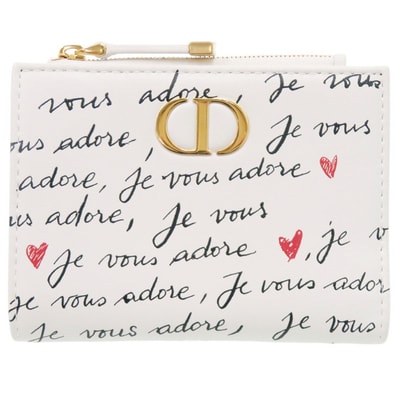 vous adore, Je vous
CD
vous adore, Je vous
adore, Je vous adore, Je vous adore
vous adore, Je vous
Je vous adore, je v
je vous adore, Je vous adore
Je vous adore, Je vous